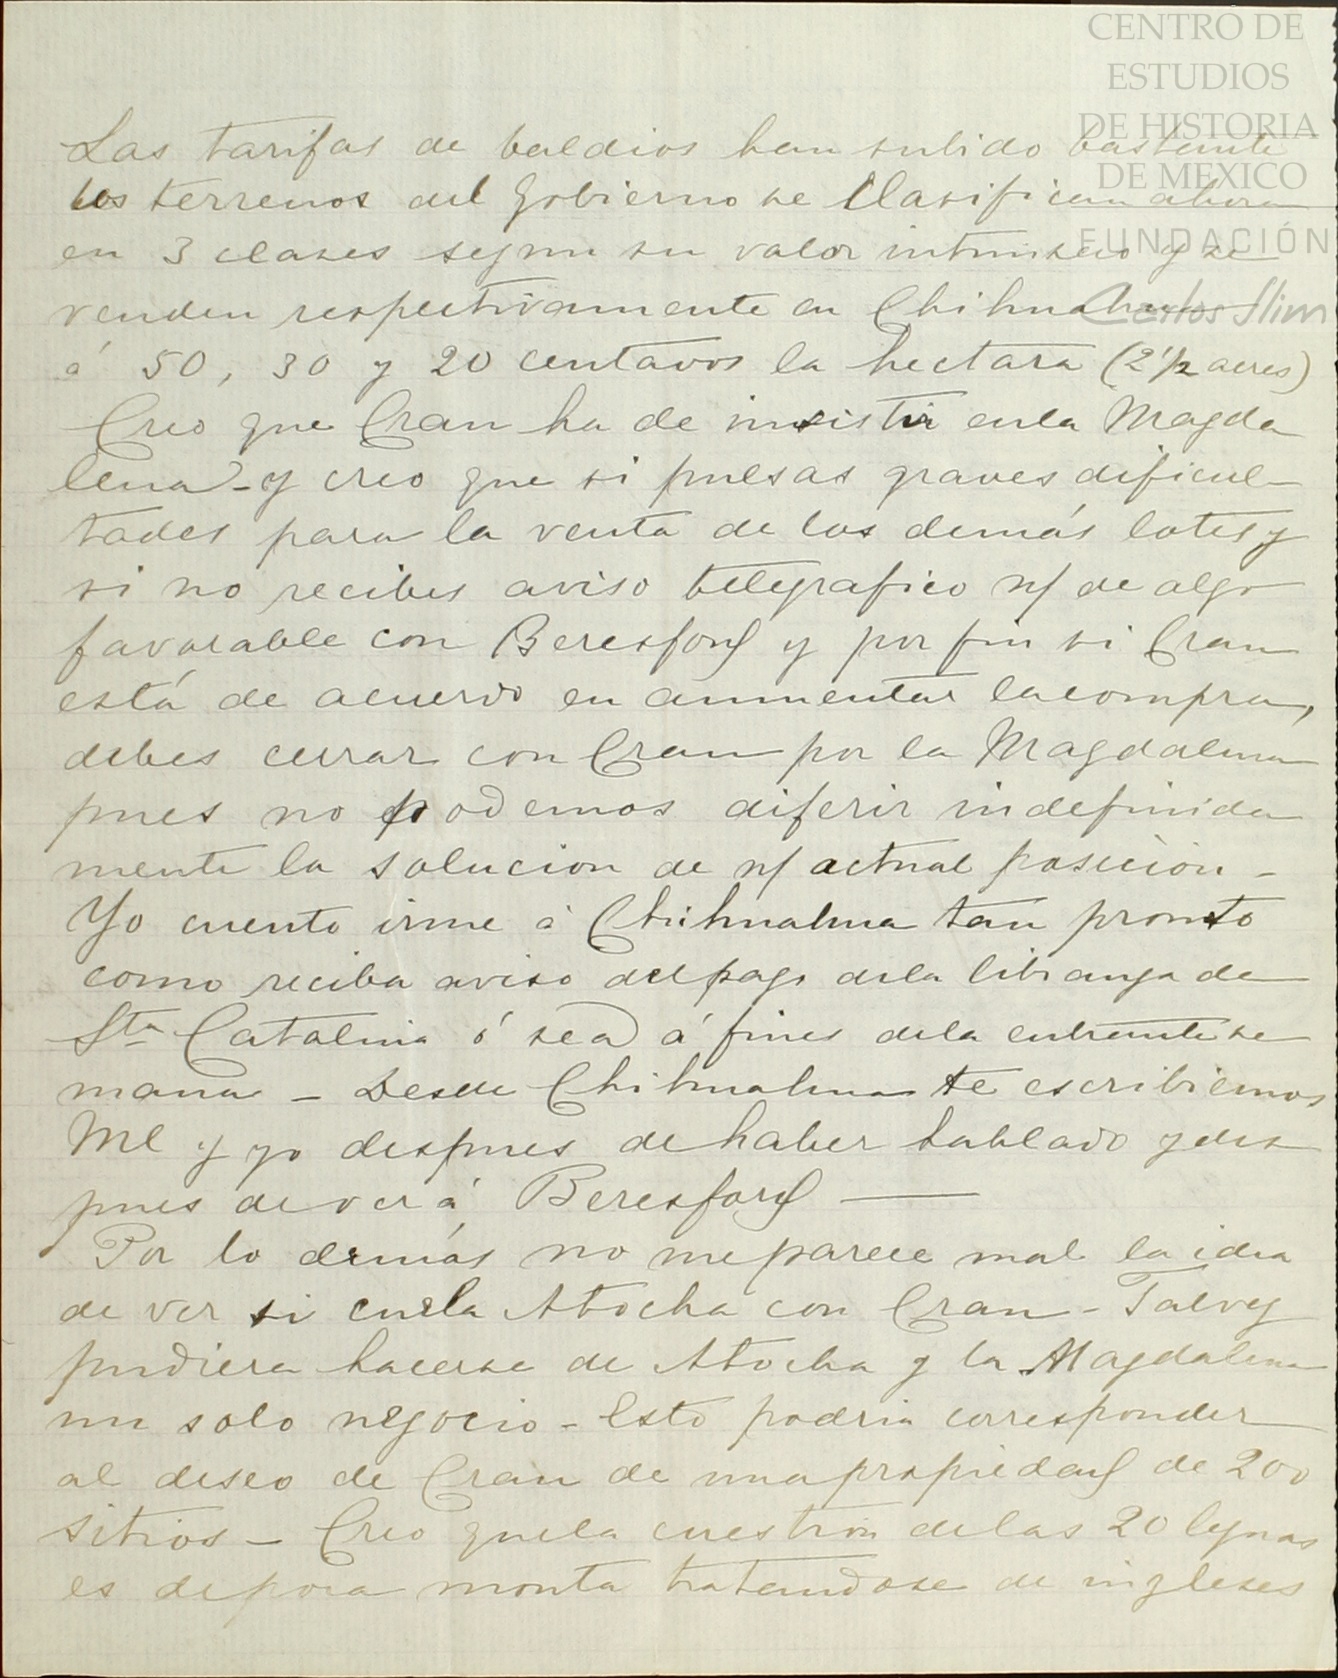 CENTRO DE
ESTUDIOS
DE HISTORIA
DE MEXICO
FUNDACIÓN
Carlos Slim
Las tarifas de baldios han subido bastante
los terrenos del Gobierno se Clasifican ahora
en 3 clases segun su valor intrinseco y se
venden respectivamente en Chihuahua
á 50, 30 y 20 centavos la hectara (2 1/2 acres)
Creo que Cran ha de insistir en la Magda
lena - y creo que si pulsas graves dificul-
tades para la venta de los demás lotes y
si no recibes aviso telegrafico n/ de algo
favorable con Beresford y por fin si Cran
está de acuerdo en aumentar la compra,
debes cerrar con Cran por la Magdalena
pues no podemos diferir indefinida
mente la solucion de n/ actual posición -
Yo cuento irme á Chihuahua tan pronto
como reciba aviso del pago de la libranza de
Sta Catalina ó sea á fines de la entrante se
mana - Desde Chihuahua te escribiremos
Ml y yo despues de haber hablado y des
pues de ver á Beresford —
Por lo demás no me parece mal la idea
de ver si cuela Atocha con Cran - Talvez
pudiera hacerse de Atocha y la Magdalena
un solo negocio - Esto podria corresponder
al deseo de Cran de una propiedad de 200
sitios - Creo que la cuestion de las 20 leguas
es de poca monta tratandose de ingleses